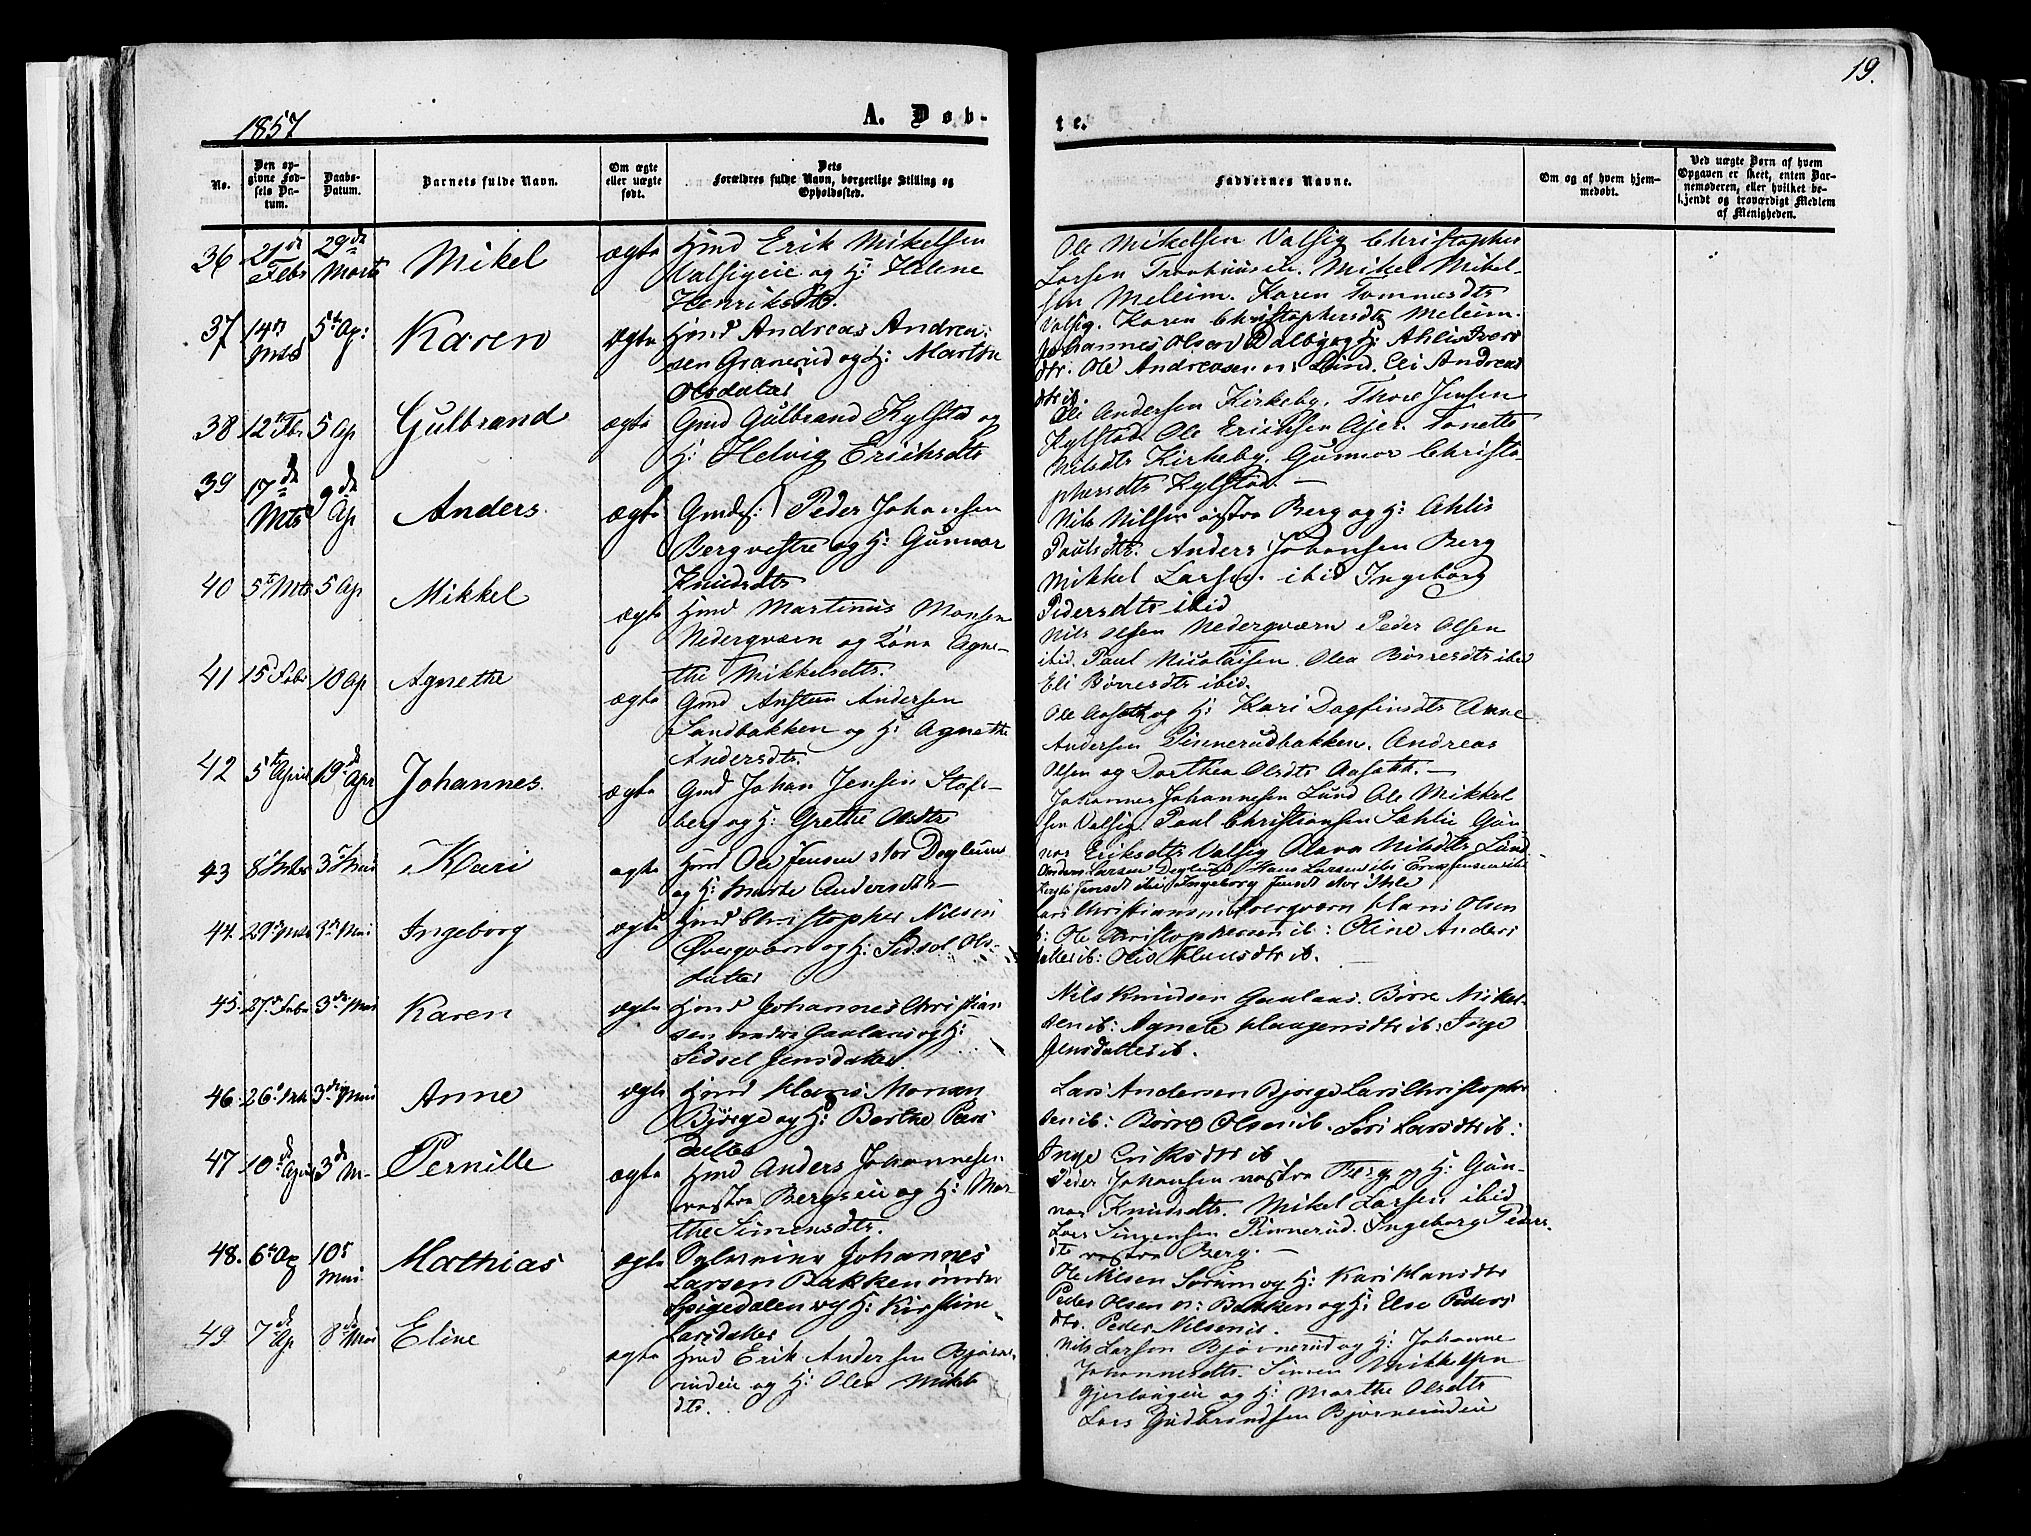 19.
1857
A. Døb-
te.
No.
Den op-
givne Fød-
sels Da-
tum.
Daabs-
Datum.
Barnets fulde Navn.
Om ægte
eller uægte
født.
Dets
Forældres fulde Navn, borgerlige Stilling og
Opholdssted.
Faddernes Navne.
Om og af hvem hjem-
medøbt.
Ved uægte Børn af hvem
Opgaven er skeet, enten Bar-
nemoderen, eller hvilket be-
kjendt og troværdigt Medlem
af Menigheden.
36 21de Febr 29de Marts Mikel ægte Hmd Erik Mikelsen
Valsigeie og H: Helene
Henriksdtr.
Ole Mikelsen Valsig Christopher
Larsen Mikel Mikel-
sen Meleim. Karen Tommesdtr
Valsig. Karen Christophersdtr Meleim.
37 14de Mts 5te Ap: Karen ægte Hmd Andreas Andrea-
sen Granerud og H: Marthe
Olsdatter
Johannes Olsen Dalby og H: Ahlis Ivers
dtr. Ole Andreasen n: Lund. Eli Andreas
dtr ib.
38 12te Fbr 5 Ap Gulbrand ægte Gmd Gulbrand Kylstad og
H: Helvig Eriksdtr
Ole Andersen Kirkeby. Thore Jensen
Kylstad. Ole Eriksen Ajer. Tonette
Nilsdtr Kirkeby. Gunnor Christo-
phersdtr Kylstad. —
39 17de Mts 9de Ap Anders. ægte Gmds: Peder Johansen
Berg vestre og H: Gunnor
Knudsdtr
Nils Nilsen østre Berg og H: Ahlis
Paulsdtr. Anders Johansen Berg
Mikkel Larsen ibid Ingeborg
Pedersdtr ibid
40 5te Mts 5 Ap Mikkel ægte Hmd Martinus Monsen
Nedergværn og Kone Agne-
the Mikkelsdtr.
Nils Olsen Nedergværn Peder Olsen
ibid. Paul Nicolaisen. Olea Børresdtr ibid
Eli Børresdtr ibid.
41 15 Febr 10 Ap Agnethe ægte Gmd Ansteen Andersen
Sandbakken og H: Agnethe
Andersdtr.
Ole Aasæth og H: Kari Dagfinsdtr Anne
Andersen Finnerudbakken. Andreas
Olsen og Dorthea Olsdtr Aasæth. —
42 5te April 19de Apr Johannes. ægte Gmd Johan Jensen Stafs-
berg og H: Grethe Olsdtr
Johannes Johannesen Lund Ole Mikkel
sen Valsig. Paul Christiansen Sæhlie Gun
nor Eriksdtr Valsig Olava Nilsdtr Lund
43 3de Mai Kari ægte Hmd Ole Jensen stor Deglum
og H: Marte Andersdtr —
Anders Larsen Deglum Hans Larsen ib: Jensen ibid
Jensdt ibid Ingeborg Jensdt stor Ihle
44. 29de Mts 3de Mai Ingeborg ægte Hmd Christopher Nilsen
Øvergværn og H: Sidsel Ols-
datter
Lars Christiansen Øvergværn Hans Olsen
ib: Ole Christophersen ib: Oline Anders
datter ib: Olis Hansdtr ib.
45. 27de Febr 3de Mai Karen ægte Hmd Johannes Christian-
sen nedre Gaalaas og H:
Sidsel Jensdatter
Nils Knudsen Gaalaas. Børre Mikel-
sen ib: Agnete Haagensdtr ib: Inge
Jensdatter ib.
46. 26de Mts 3die Mai Anne ægte Hmd Hans Monsen
Bjørge og H: Berthe Pers
datter
Lars Andersen Bjørge Lars Christopher
sen ib: Børre Olsen ib. Siri Larsdtr ib:
Inge Eriksdtr ib
47 10de April 3de M. Pernille ægte Hmd Anders Johannesen
vestre Bergseie og H: Mar-
the Simensdtr.
Peder Johansen vestre Berg og H: Gun-
nor Knudsdtr. Mikel Larsen ibid
Lars Simensen Finnerud. Ingeborg Peders-
dtr vestre Berg. —
48. 6te Ap 10de Mai Mathias ægte Johannes
Larsen Bakken under
Spigedalen og H: Kirstine
Larsdatter
Ole Nilsen Sørum og H: Kari Hansdtr
Peder Olsen n: Bakken og H: Else Peders
dtr. Peder Nilsen ib.
49 7de Ap 8de Mai Eline ægte Hmd Erik Andersen Bjørne-
rudeie og H: Olea Mikels
dtr.
Nils Larsen Bjørnerud og H: Johanne
Johannesdtr. Simen Mikkelsen
Gjerlougeie og H: Marthe Olsdtr
Lars Gudbrandsen Bjørnerudeie